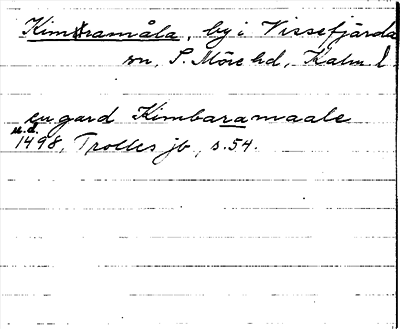 Kimramåla, by i Vissefjärda
sn, S. Möre hd, Kalm l.
en gard Kimbaramaale
u.d.
1498, Trolles jb, s. 54.